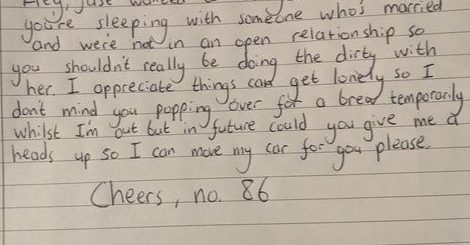 Hey, just wanted
you're sleeping with someone who's married
and we're not in an open relationship so
you shouldn't really be doing the dirty with
her. I appreciate things can get lonely so I
don't mind you popping over for a brew temporarily
whilst I'm out but in future could you give me a
heads up so I can move my car for you please.
Cheers, no. 86